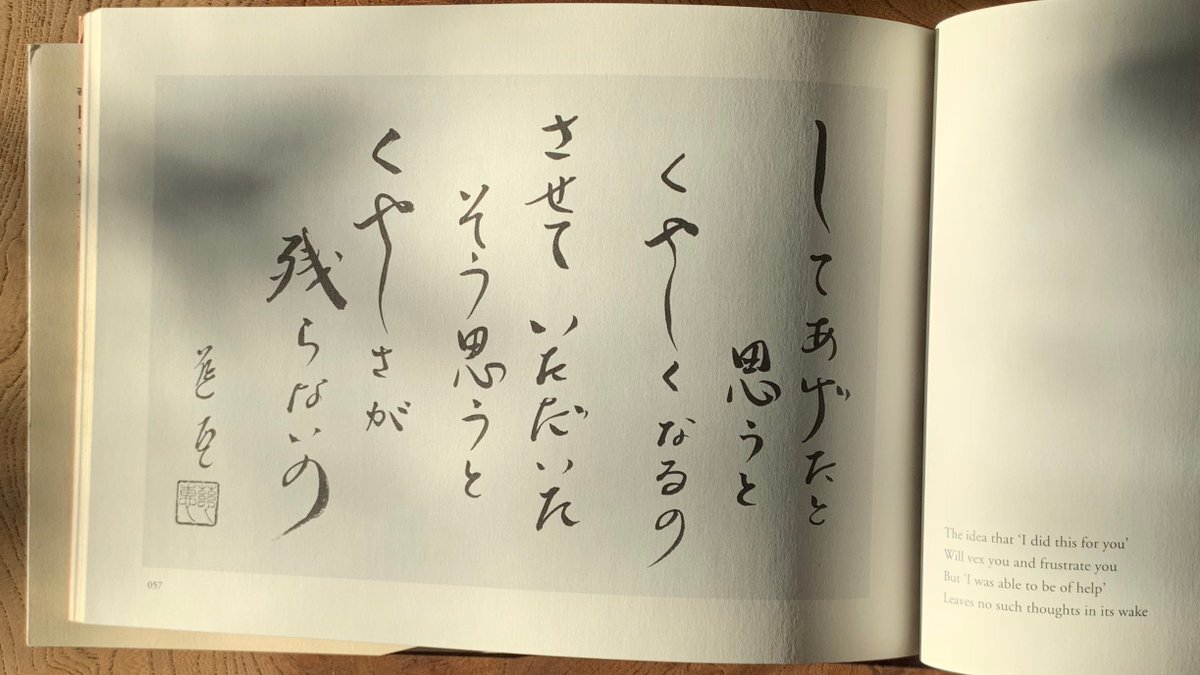 してあげたと
思うと
くやしくなるの
させて いただいた
そう思うと
くやしさが
残らないの
057
The idea that ‘I did this for you’
Will vex you and frustrate you
But ‘I was able to be of help’
Leaves no such thoughts in its wake